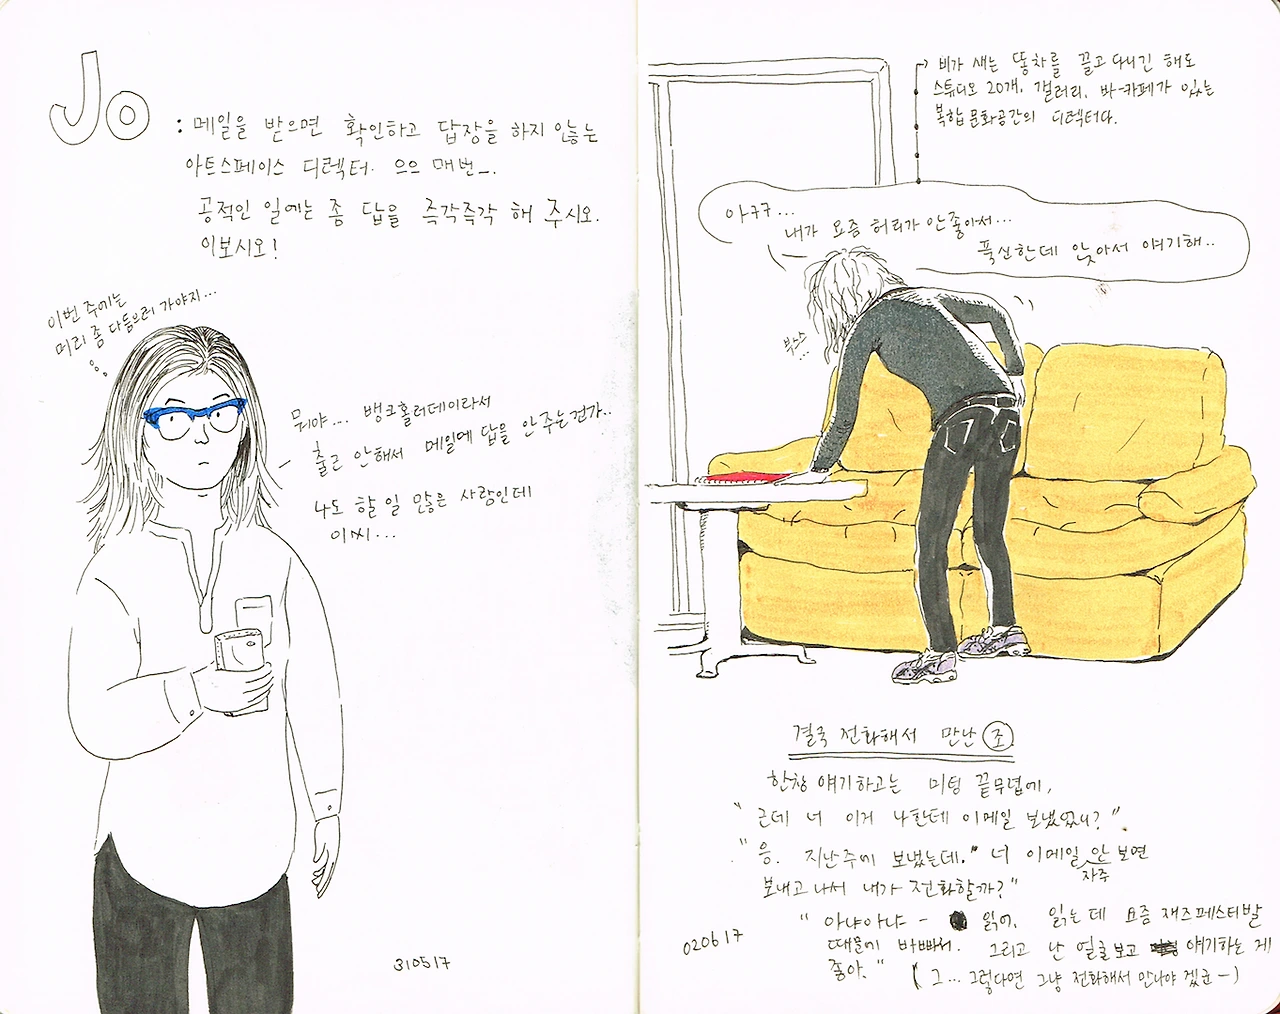 Jo
: 메일을 받으면 확인하고 답장을 하지 않는
아트스페이스 디렉터. 으으 매번-.
공적인 일에는 좀 답을 즉각즉각 해 주시오.
이보시오!
이번 주에는
머리 좀 다듬으러 가야지...
뭐야.... 뱅크홀러데이라서
출근 안해서 메일에 답을 안 주는건가..
나도 할 일 많은 사람인데
이씨...
310517
비가 새는 똥차를 끌고 다니긴 해도
스튜디오 20개, 갤러리, 바-카페가 있는
복합 문화공간의 디렉터다.
아구구...
내가 요즘 허리가 안 좋아서...
푹신한데 앉아서 얘기해..
부스스
...
결국 전화해서 만난 조
한창 얘기하고는 미팅 끝무렵에,
"근데 너 이거 나한테 이메일 보냈었니?".
"응. 지난주에 보냈는데." 너 이메일 안 보면
자주
보내고 나서 내가 전화할까?"
"아냐아냐 - 읽어. 읽는데 요즘 재즈페스티발
때문에 바빠서. 그리고 난 얼굴 보고 얘기하는 게
좋아." (그... 그렇다면 그냥 전화해서 만나야 겠군-)
020617